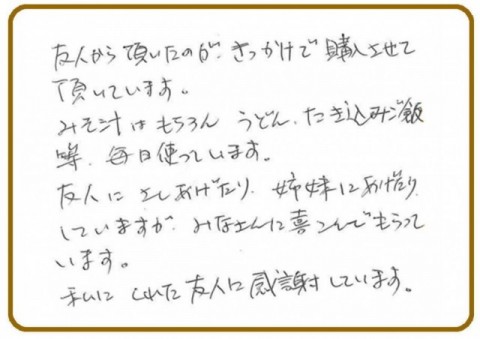 友人から頂いたのが、きっかけで購入させて
頂いています。
みそ汁はもちろん うどん、たき込みご飯
等、毎日使っています。
友人にさしあげたり、姉妹にあげたり
していますが、みなさんに喜こんでもらって
います。
私にくれた友人に感謝しています。